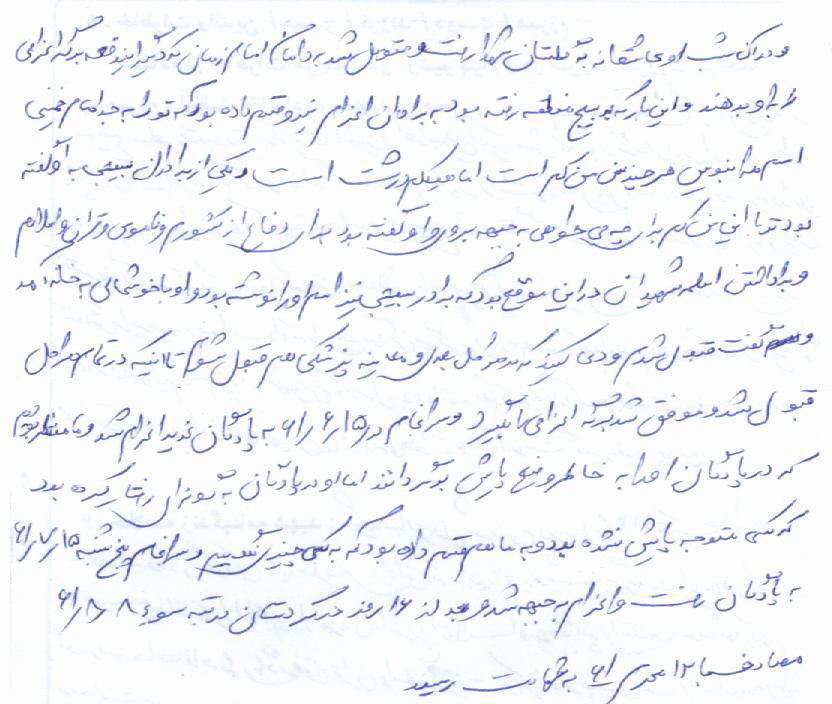 و در آن شب او عاشقانه به گلستان شهدا رفت و متوسل شد به دامان امام زمان که دیگر این دفعه برگه اعزامی
را به او بدهند و این بار که به بسیج منطقه رفته بود به برادران اعزام نیرو قسم داده بود که تو را به جد امام خمینی
اسم مرا بنویس هر چند من سن کم است اما هیکلم درشت است و یکی از برادران بسیجی به او گفته
بود تو با این سن کم برای چه می خواهی به جبهه بروی و او گفته بود برای دفاع از کشورم و ناموس و قرآن و اسلام
و برداشتن اسلحه شهیدان در این موقع بود که برادر بسیجی نیز اسم او را نوشته بود و او با خوشحالی به خانه آمد
و گفت قبول شدم و دعا کنید که در مراحل بعدی و معاینه پزشکی هم قبول شوم تا اینکه در تمام مراحل
قبول شد و موفق شد برگه اعزامی بگیرد و سرانجام در ۶۱/۶/۱۵ به پادگان غدیر اعزام شد و ما منتظر بودیم
که در پادگان او را به خاطر وضع پایش برگردانند اما او در پادگان به گونه ای رفتار کرده بود
که کسی متوجه پایش نشده بود و به ما هم قسم داده بود که به کسی چیزی نگوییم و سرانجام پنج شنبه ۶۱/۷/۱۵
به پادگان رفت و اعزام به جبهه شد و بعد از ۱۶ روز در کردستان در تپه سوء ۶۱/۸/۸
مصادف با ۱۲ محرم ۶۱ به شهادت رسید